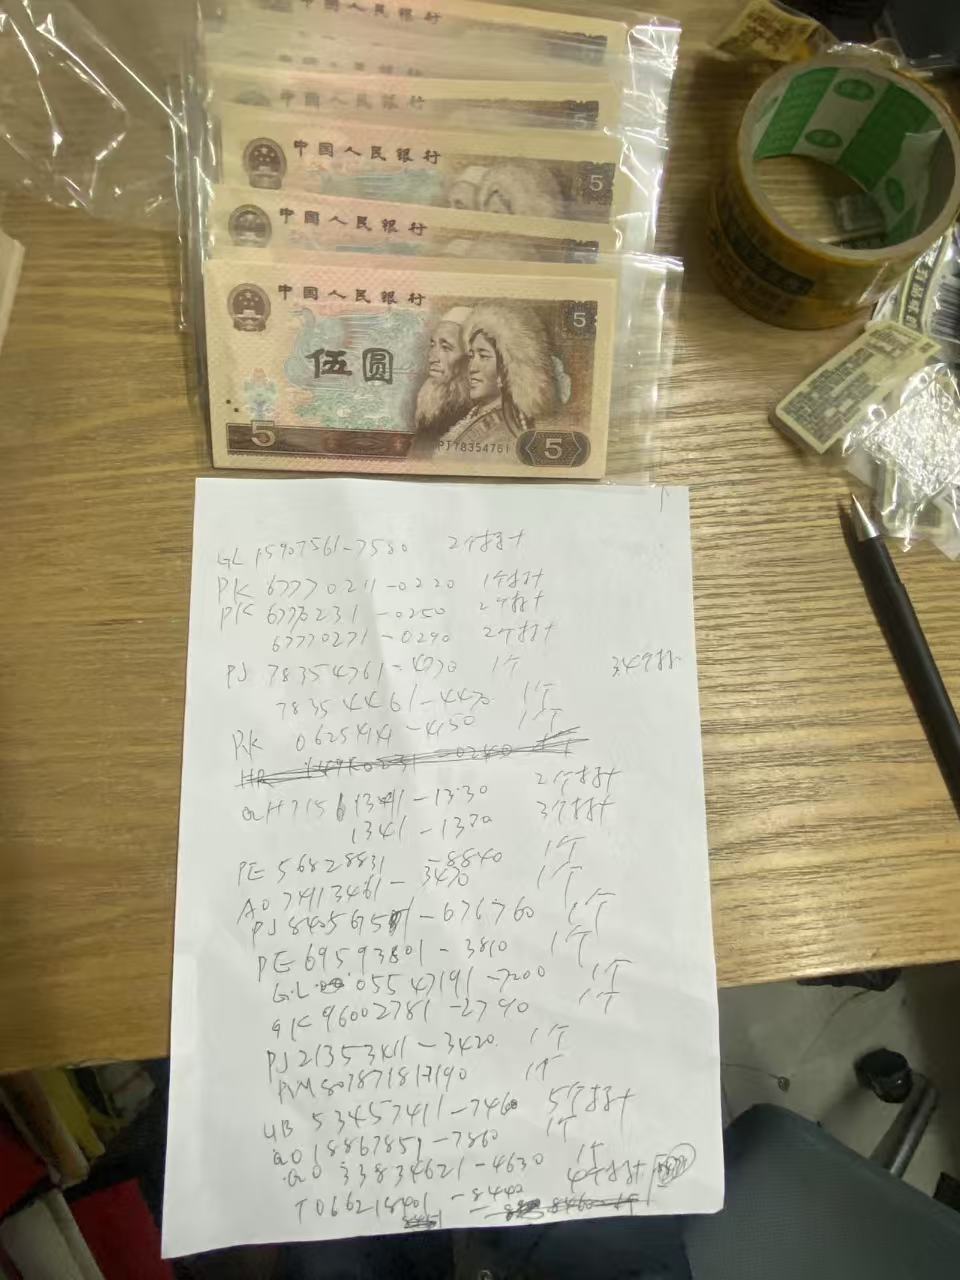 中国人民银行
中国人民银行
中国人民银行
中国人民银行 5
中国人民银行
中国人民银行 5
伍圆
5 PJ78354761 5
GL 15907561-7580 2个打计
PK 67770211-0220 1个打计
PK 6770231-0250 2个打计
67770271-0290 2个打计
PJ 78354761-4770 1个
349打
78354461-4470 1个
PK 06254141-4150 1个
QH 71561311-1330 2个打计
1341-1370 3个打计
PE 56828831-8840 1个
AO 74113461-3470 1个
PJ 84056751-676760 1个
PE 69593801-3810 1个
GL 05547191-7200 1个
GK 96002781-2790 1个
PJ 21353411-3420 1个
PM 801871817190 1个
UB 53457411-7460 5个打计
QO 18867851-7860 1个
QO 33834621-4630 1个
TO 66218401-8440 4个打计